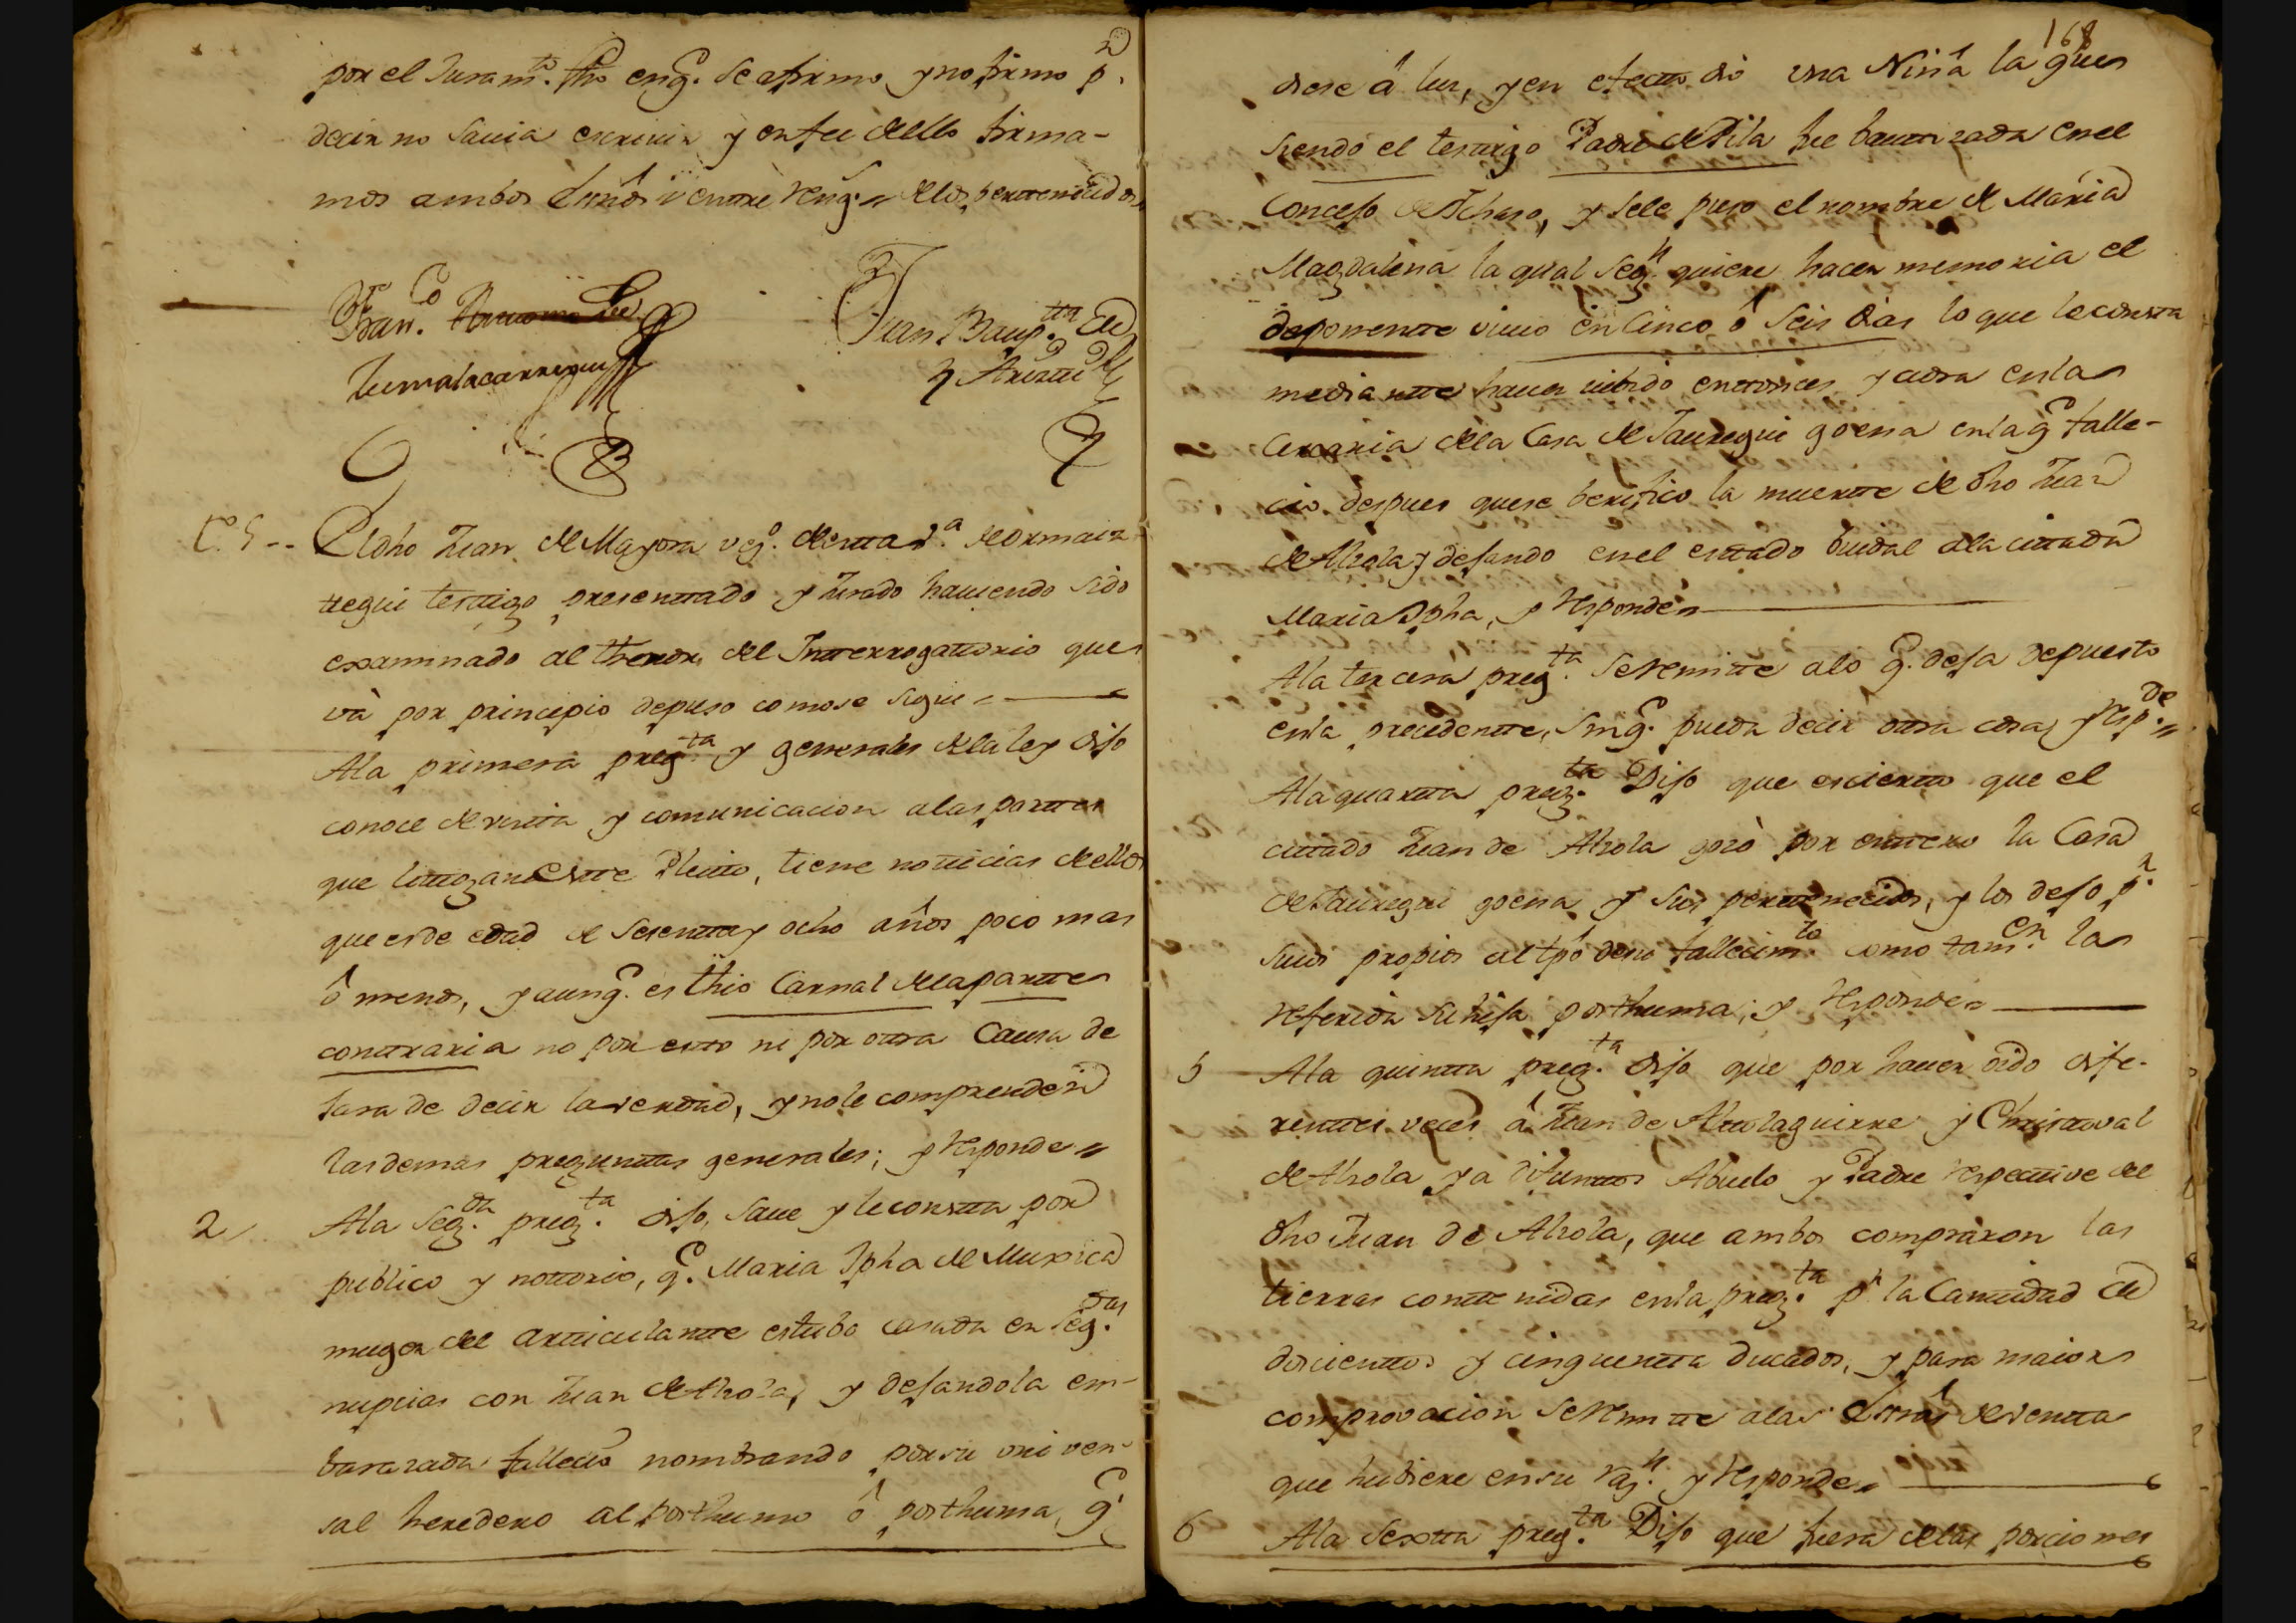 por el Juram.to fho en q.e se afirmo y no firmo p.r
decir no savia escrivir y en fee dello firma-
mos ambos Essnos entre reng.s de los pertenecidos
Fran.co Antonio de
Zumalacarregui
Juan Baup.tta de
Ariztti
T. 5 -- El dho Juan de Mayora vez.o de esta v.a de ormaiz
tegui testigo presenttado y Jurado haviendo sido
examinado al thenor del Intterrogattorio que
và por principio depuso como se sigue
Ala primera preg.ta y generales de la ley dijo
conoce de vistta y comunicacion a las parttes
que littigan estte Pleitto, tiene notticias dellos
que es de edad de sesentta y ocho años poco mas
ô menos, y aunq.e es thio Carnal de la partte
conttraria no por estto ni por ottra Causa de
jara de decir la verdad, y no le comprenden
las demas preguntas generales; y responde
2 Ala seg.da preg.ta dijo, save y le constta por
publico y nottorio, q.e Maria Jpha de Muxica
muger del artticulantte estubo casada en seg.das
nupcias con Juan de Alzola, y dejandola em-
barazada fallecio nombrando por su univer-
sal heredero al posthumo ô posthuma q.e
168
diese â luz, y en efectto dio una Niña la que
siendo el testtigo Padre de Pila fue bauttizada en el
Concejo de Ichaso, y se le puso el nombre de Maria
Magdalena la qual seg.n quiere hacer memoria el
deponentte vivio en Cinco ô seis dias lo que le constta
mediantte haver vibido enttonces y aora en la
Cercania de la Casa de Jauregui goena en la q.e falle-
cio despues que se berifico la muertte de dho Juan
de Alzola, y dejando en el esttado buidal a la cittada
Maria Jpha, y responde
Ala tercera preg.ta se remitte a lo q.e deja depuesto
en la precedentte, sin q.e pueda decir ottra cosa, y resp.de
Ala quartta preg.ta Dijo que es ciertto que el
cittado Juan de Alzola gozò por enttero la Casa
de Jauregui goena y sus perttenecidos, y los dejo p.r
suios propios al tpo de su fallecim.to como tam.en la
referida su hija posthuma; y responde
5 Ala quintta preg.ta dijo que por haver oido dife-
renttes veces â Juan de Alttolaguirre y Christtoval
de Alzola ya difunttos Abuelo y Padre respecttive del
dho Juan de Alzola, que ambos compraron las
tierras conttenidas en la preg.ta p.r la Canttidad de
dosciienttos y cinquentta ducados, y para maior
comprovacion se remitte a las Essras de ventta
que hubiere en su raz.n y responde
6 Ala Sextta preg.ta Dijo que fuera de las porciones